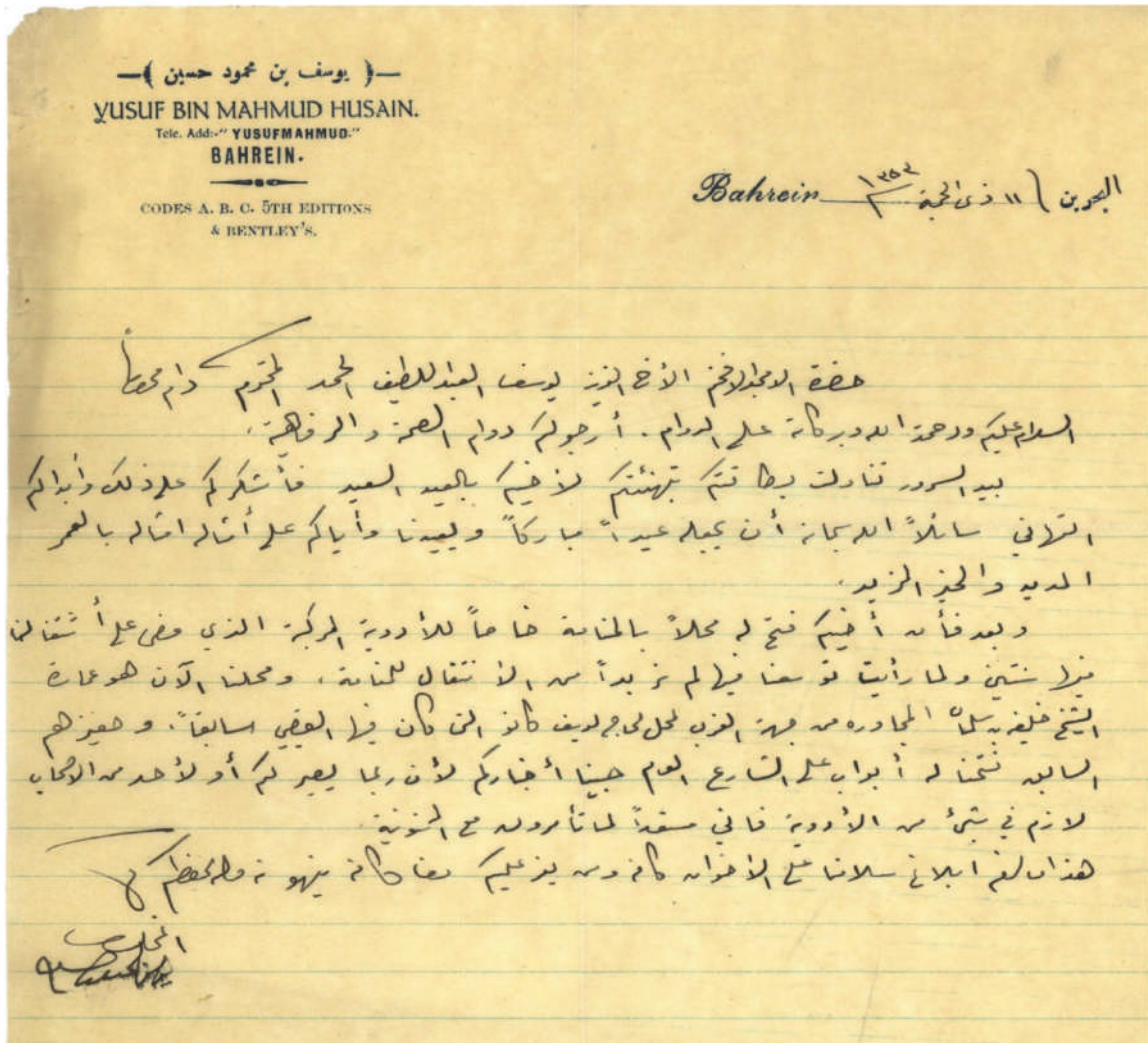 —( يوسف بن محمود حسين )—
YUSUF BIN MAHMUD HUSAIN.
Tele. Add:-" YUSUFMAHMUD."
BAHREIN.
CODES A. B. C. 5TH EDITIONS
& BENTLEY'S.
Bahrein البحرين / ١١ ذي الحجة ١٣٥٣
حضرة الامجد الافخم الأخ العزيز يوسف العبداللطيف الحمد المحترم دام محروساً
السلام عليكم ورحمة الله وبركاته على الدوام. أرجو لكم دوام الصحة والرفاهية.
بيد السرور تناولت بطاقتكم بتهنئتكم لأخيكم بالعيد السعيد فأشكركم على ذلك وأبدالكم
التهاني سائلاً الله سبحانه أن يجعله عيداً مباركاً ويعيدنا وأياكم على أمثاله امثاله بالعمر
المديد والخير المزيد.
وبعد فأن أخيكم فتح له محلاً بالمنامة خاصاً للأدوية المركبة الذي مضى على أشغالنا
فيها سنتين ولما رأيت توسعنا فيها لم نر بداً من الأنتقال للمنامة. ومحلنا الآن هو عمارة
الشيخ خليفه بن سلمان المجاوره من جهة الغرب لمحل الحاج يوسف كانو التي كان فيها القصيبي سابقاً.
السابق فتحنا له أبواب على الشارع العام حبينا أخباركم لأن ربما يصير لكم أو لأحد من الاصحاب
لازم في شيء من الأدوية فاني مستعداً لما تأمرون مع الممنونية.
هذا ما لزم ابلاغ سلامنا على الأخوان كافه ومن يعز عليكم كما كافة ودمتم
المخلص